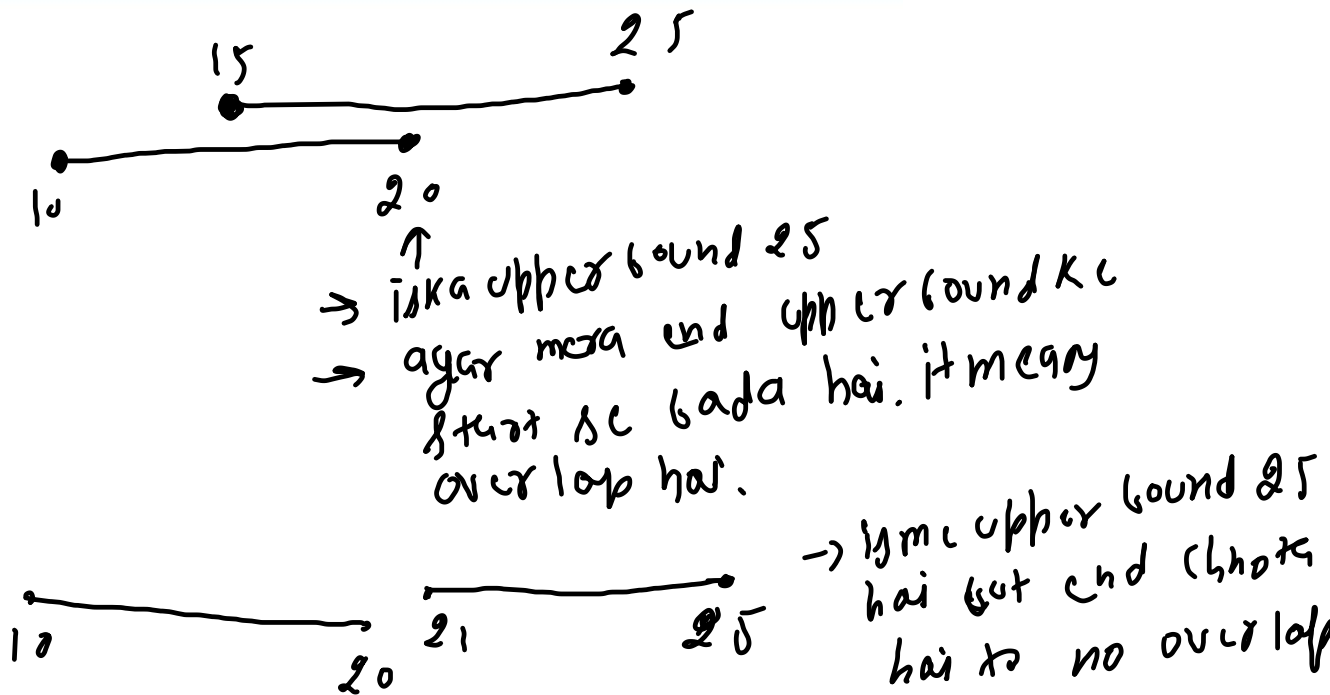 15 25
10 20
→ iska upper bound 25
→ agar mera end upper bound ke
start se bada hai. it means
overlap hai.
10 20 21 25
→ isme upper bound 25
hai but end chhota
hai to no overlap